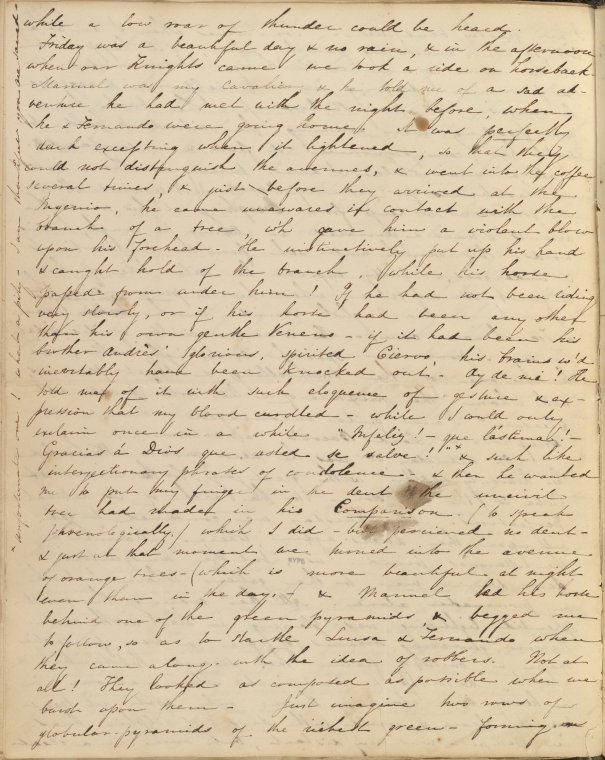 while a low roar of thunder could be heard.
Friday was a beautiful day & no rain, & in the afternoon
when our Knights came we took a ride on horseback.
Manuel was my Cavalier & he told me of a sad ad-
venture he had met with the night before, when
he & Fernando were going home. It was perfectly
dark excepting when it lightened, so that they
could not distinguish the avenues, & went into the coffee
several times, & just before they arrived at the
Ingenio, he came unawares in contact with the
branch of a tree wh gave him a violent blow
upon his forehead. He instinctively put up his hand
& caught hold of the branch, while his horse
passed from under him! If he had not been riding
very slowly, or if his horse had been any other
than his own gentle Veneno - if it had been his
brother Andres' glorious, spirited Ciervo, his brains w'd
inevitably have been knocked out - Ay de mi! He
told me of it with such eloquence of gesture & ex-
pression that my blood curdled - while I could only
exclaim once in a while "Infeliz! - que lástima! -
Gracias á Dios que usted se salve!"* & such like
interjectionary phrases of condolence - & then he wanted
me to put my finger in the dent the uncivil
tree had made in his Comparison. (to speak
phrenologically,) which I did - but perceived no dent -
& just at that moment we turned into the avenue
of orange trees - (which is more beautiful at night
even than in the day. - & Manuel led his horse
behind one of the green pyramids & begged me
to follow, so as to startle Luisa & Fernando when
they came along, with the idea of robbers. Not at
all! They looked as composed as possible when we
burst upon them - Just imagine two rows of
globular-pyramids of the richest green - forming
* unfortunate one! what a pity - thank God you are saved -
NYPL